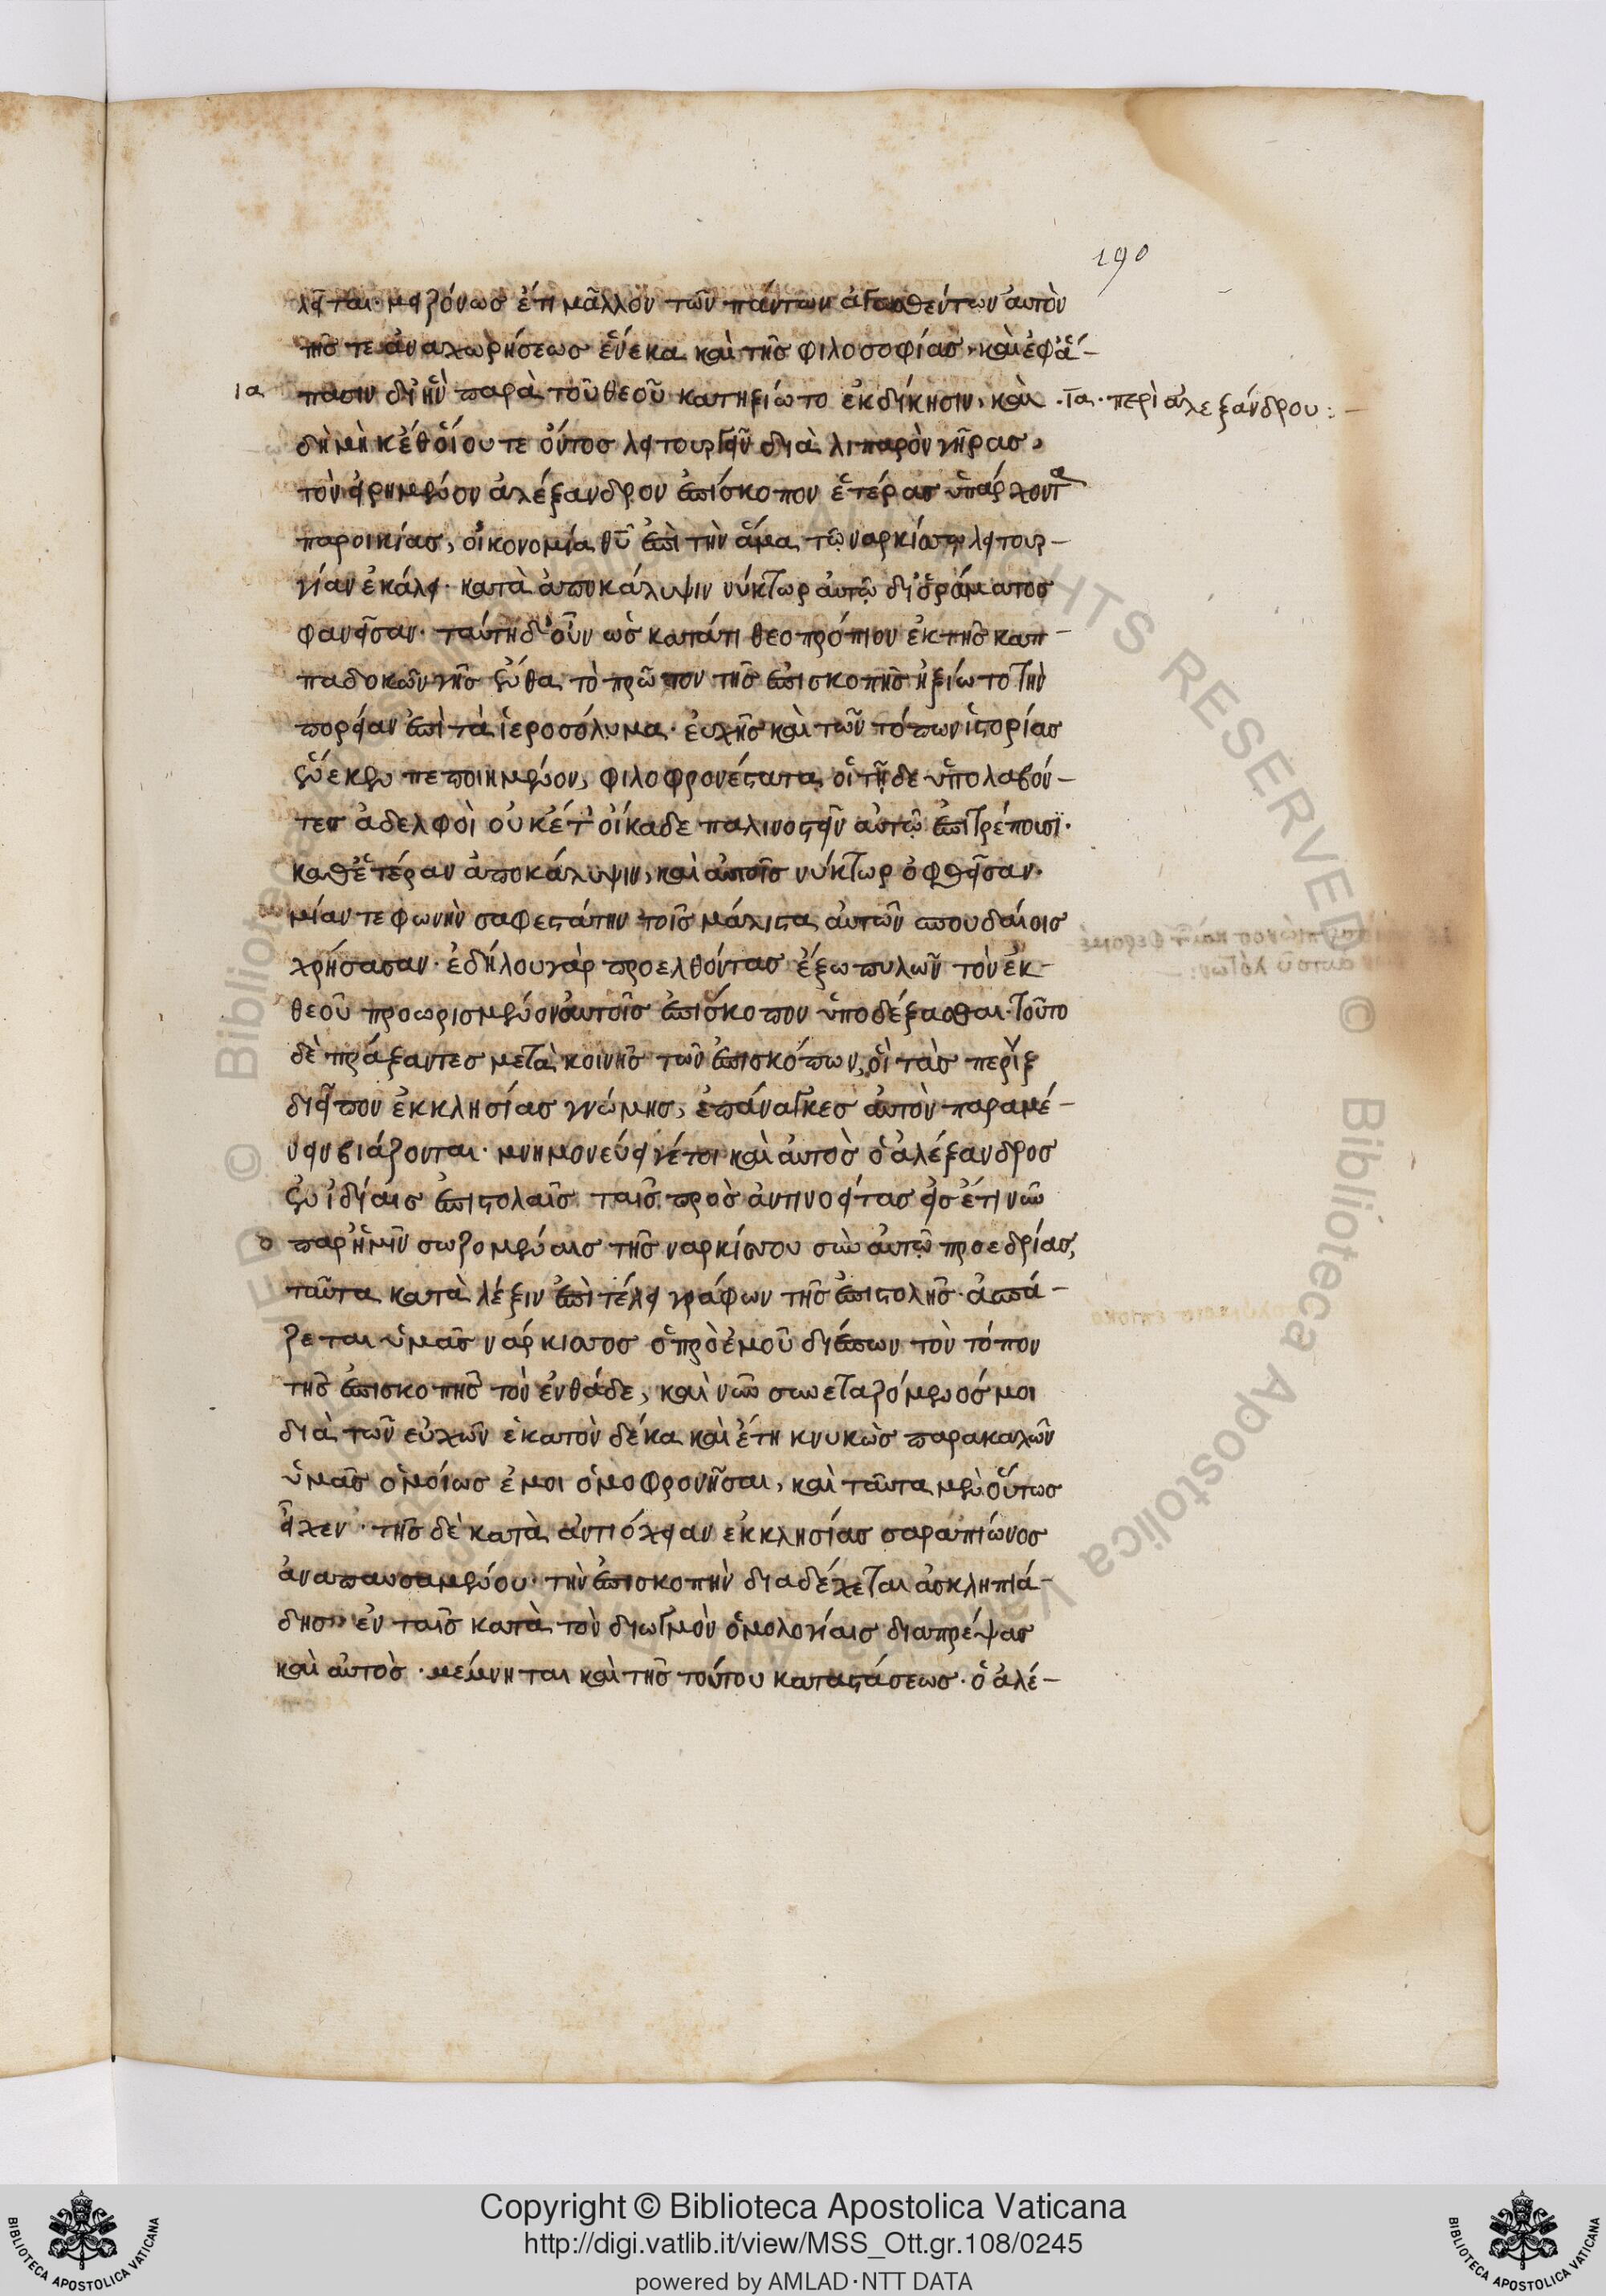 190
λεῖται· μειζόνως ἔτι μᾶλλον τῶν πάντων ἀγασθέντων αὐτὸν
τῆς τε ἀναχωρήσεως ἕνεκα καὶ τῆς φιλοσοφίας, καὶ ἐφ' ἅ-
ια πασιν δι' ἣν παρὰ τοῦ θεοῦ κατηξίωτο ἐκδίκησιν, καὶ ·ια· περὶ ἀλεξάνδρου:-
δὴ μὴ κέθ' οἵου τε ὄντος λειτουργεῖν διὰ λιπαρὸν γῆρας,
τὸν εἰρημένον ἀλέξανδρον ἐπίσκοπον ἑτέρας ὑπάρχοντα
παροικίας, οἰκονομία θῦ ἐπὶ τὴν ἅμα τῷ ναρκίσσῳ λειτουρ-
γίαν ἐκάλει· κατὰ ἀποκάλυψιν νύκτωρ αὐτῷ δι' ὁράματος
φανεῖσαν· ταύτῃ δ' οὖν ὡς κατάτι θεοπρόπιον ἐκ τῆς καπ-
παδοκῶν γῆς ἔνθα τὸ πρῶτον τῆς ἐπισκοπῆς ἠξίωτο τὴν
πορείαν ἐπὶ τὰ ἱεροσόλυμα· εὐχῆς καὶ τῶν τόπων ἱστορίας
ἕνεκεν πεποιημένον, φιλοφρονέστατα οἱ τῇδε ὑπολαβόν-
τες ἀδελφοὶ οὐκέτ' οἴκαδε παλινοστεῖν αὐτῷ ἐπιτρέπουσϊ·
καθ' ἑτέραν ἀποκάλυψιν, καὶ αὐτοῖς νύκτωρ ὀφθεῖσαν·
μίαν τε φωνὴν σαφεστάτην τοῖς μάλιστα αὐτῶν σπουδαίοις
χρήσασαν· ἐδήλου γὰρ προελθόντας ἔξω πυλῶν τὸν ἐκ-
θεοῦ προωρισμένον αὐτοῖς ἐπίσκοπον ὑποδέξασθαι· τοῦτο
δὲ πράξαντες μετὰ κοινῆς τῶν ἐπισκόπων, οἳ τὰς πέριξ
διεῖπον ἐκκλησίας γνώμης, ἐπάναγκες αὐτὸν παραμέ-
νειν βιάζονται· μνημονεύει γέ τοι καὶ αὐτὸς ὁ ἀλέξανδρος
ἐν ἰδίαις ἐπιστολαῖς ταῖς πρὸς ἀντινοείτας εἰς ἔτι νῦν
παρ' ἡμῖν σωζομέναις τῆς ναρκίσσου σὺν αὐτῷ προεδρίας,
ταῦτα κατὰ λέξιν ἐπὶ τέλει γράφων τῆς ἐπιστολῆς· ἀσπά-
ζεται ὑμᾶς νάρκισσος ὁ πρὸ ἐμοῦ διέπων τὸν τόπον
τῆς ἐπισκοπῆς τὸν ἐνθάδε, καὶ νῦν συνεταζόμενός μοι
διὰ τῶν εὐχῶν ἑκατὸν δέκα καὶ ἔτη κνυκὼς παρακαλῶν
ὑμᾶς ὁμοίως ἐμοι ὁμοφρονῆσαι, καὶ ταῦτα μὲν οὕτως
εἶχεν· τῆς δὲ κατὰ ἀντιόχειαν ἐκκλησίας σαραπίωνος
ἀναπαυσαμένου· τὴν ἐπισκοπὴν διαδέχεται ἀσκληπιά-
δης, ἐν ταῖς κατὰ τὸν διωγμὸν ὁμολογίαις διαπρέψας
καὶ αὐτὸς· μέμνηται καὶ τῆς τούτου καταστάσεως· ὁ ἀλέ-
Copyright © Biblioteca Apostolica Vaticana
http://digi.vatlib.it/view/MSS_Ott.gr.108/0245
powered by AMLAD·NTT DATA